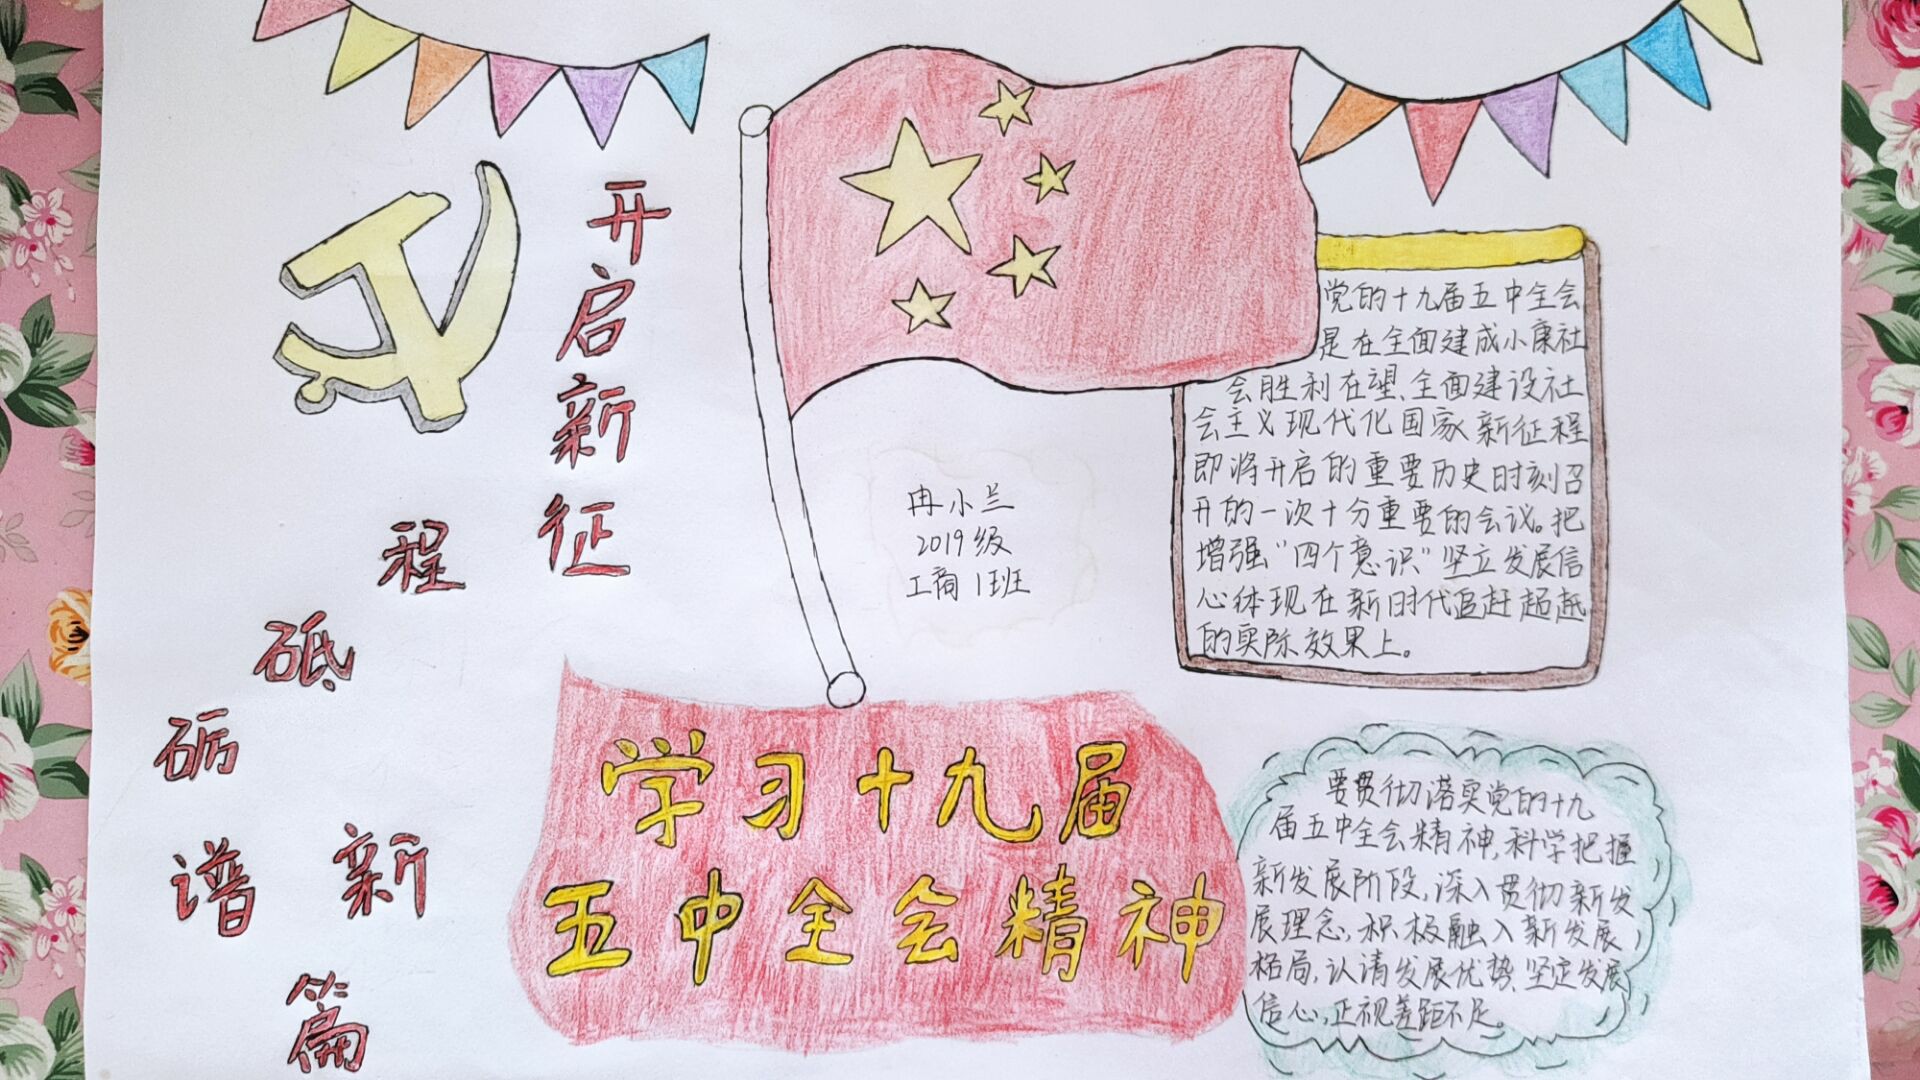 开启新征程
砥砺谱新篇
党的十九届五中全会
是在全面建成小康社
会胜利在望、全面建设社
会主义现代化国家新征程
即将开启的重要历史时刻召
开的一次十分重要的会议。把
增强“四个意识”坚立发展信
心体现在新时代追赶超越
的实际效果上。
冉小兰
2019级
工商1班
学习十九届
五中全会精神
要贯彻落实党的十九
届五中全会精神,科学把握
新发展阶段,深入贯彻新发
展理念,积极融入新发展
格局,认清发展优势、坚定发展
信心,正视差距不足。